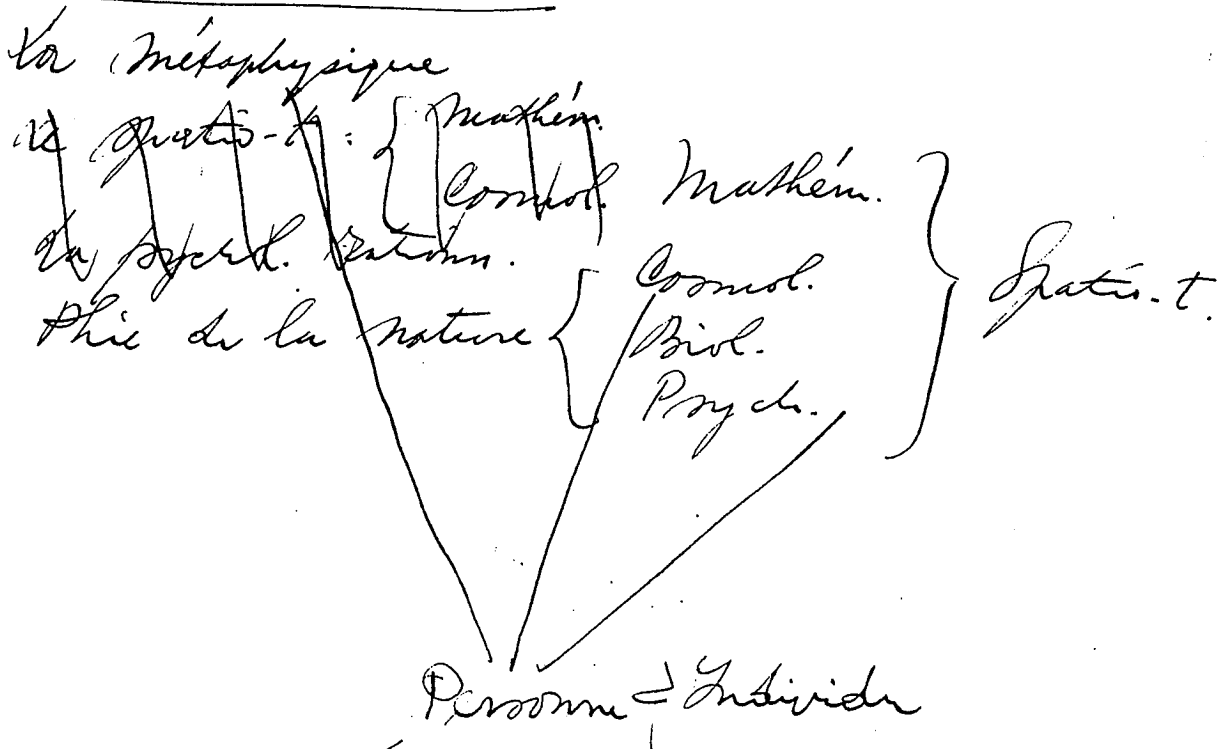 La Métaphysique
Le spatio-t : { Mathém.
Cosmol.
La psychol. rationn.
Mathém.
Phie de la nature { Cosmol.
Biol.
Psych.
} Spatio-t.
Personne Individu